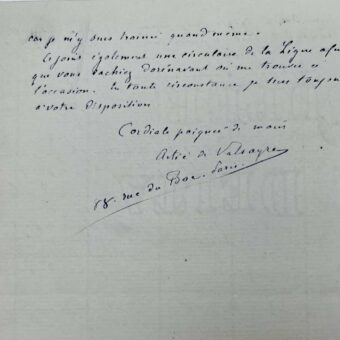 car je m'y suis trainé quand même.
Ci joint également une circulaire de la Ligue afin
que vous sachiez dorénavant où me trouver à
l'occasion. En toute circonstance je suis toujours
à votre disposition
Cordiale poignée de main
de Valsayre
rue du Bac. Paris